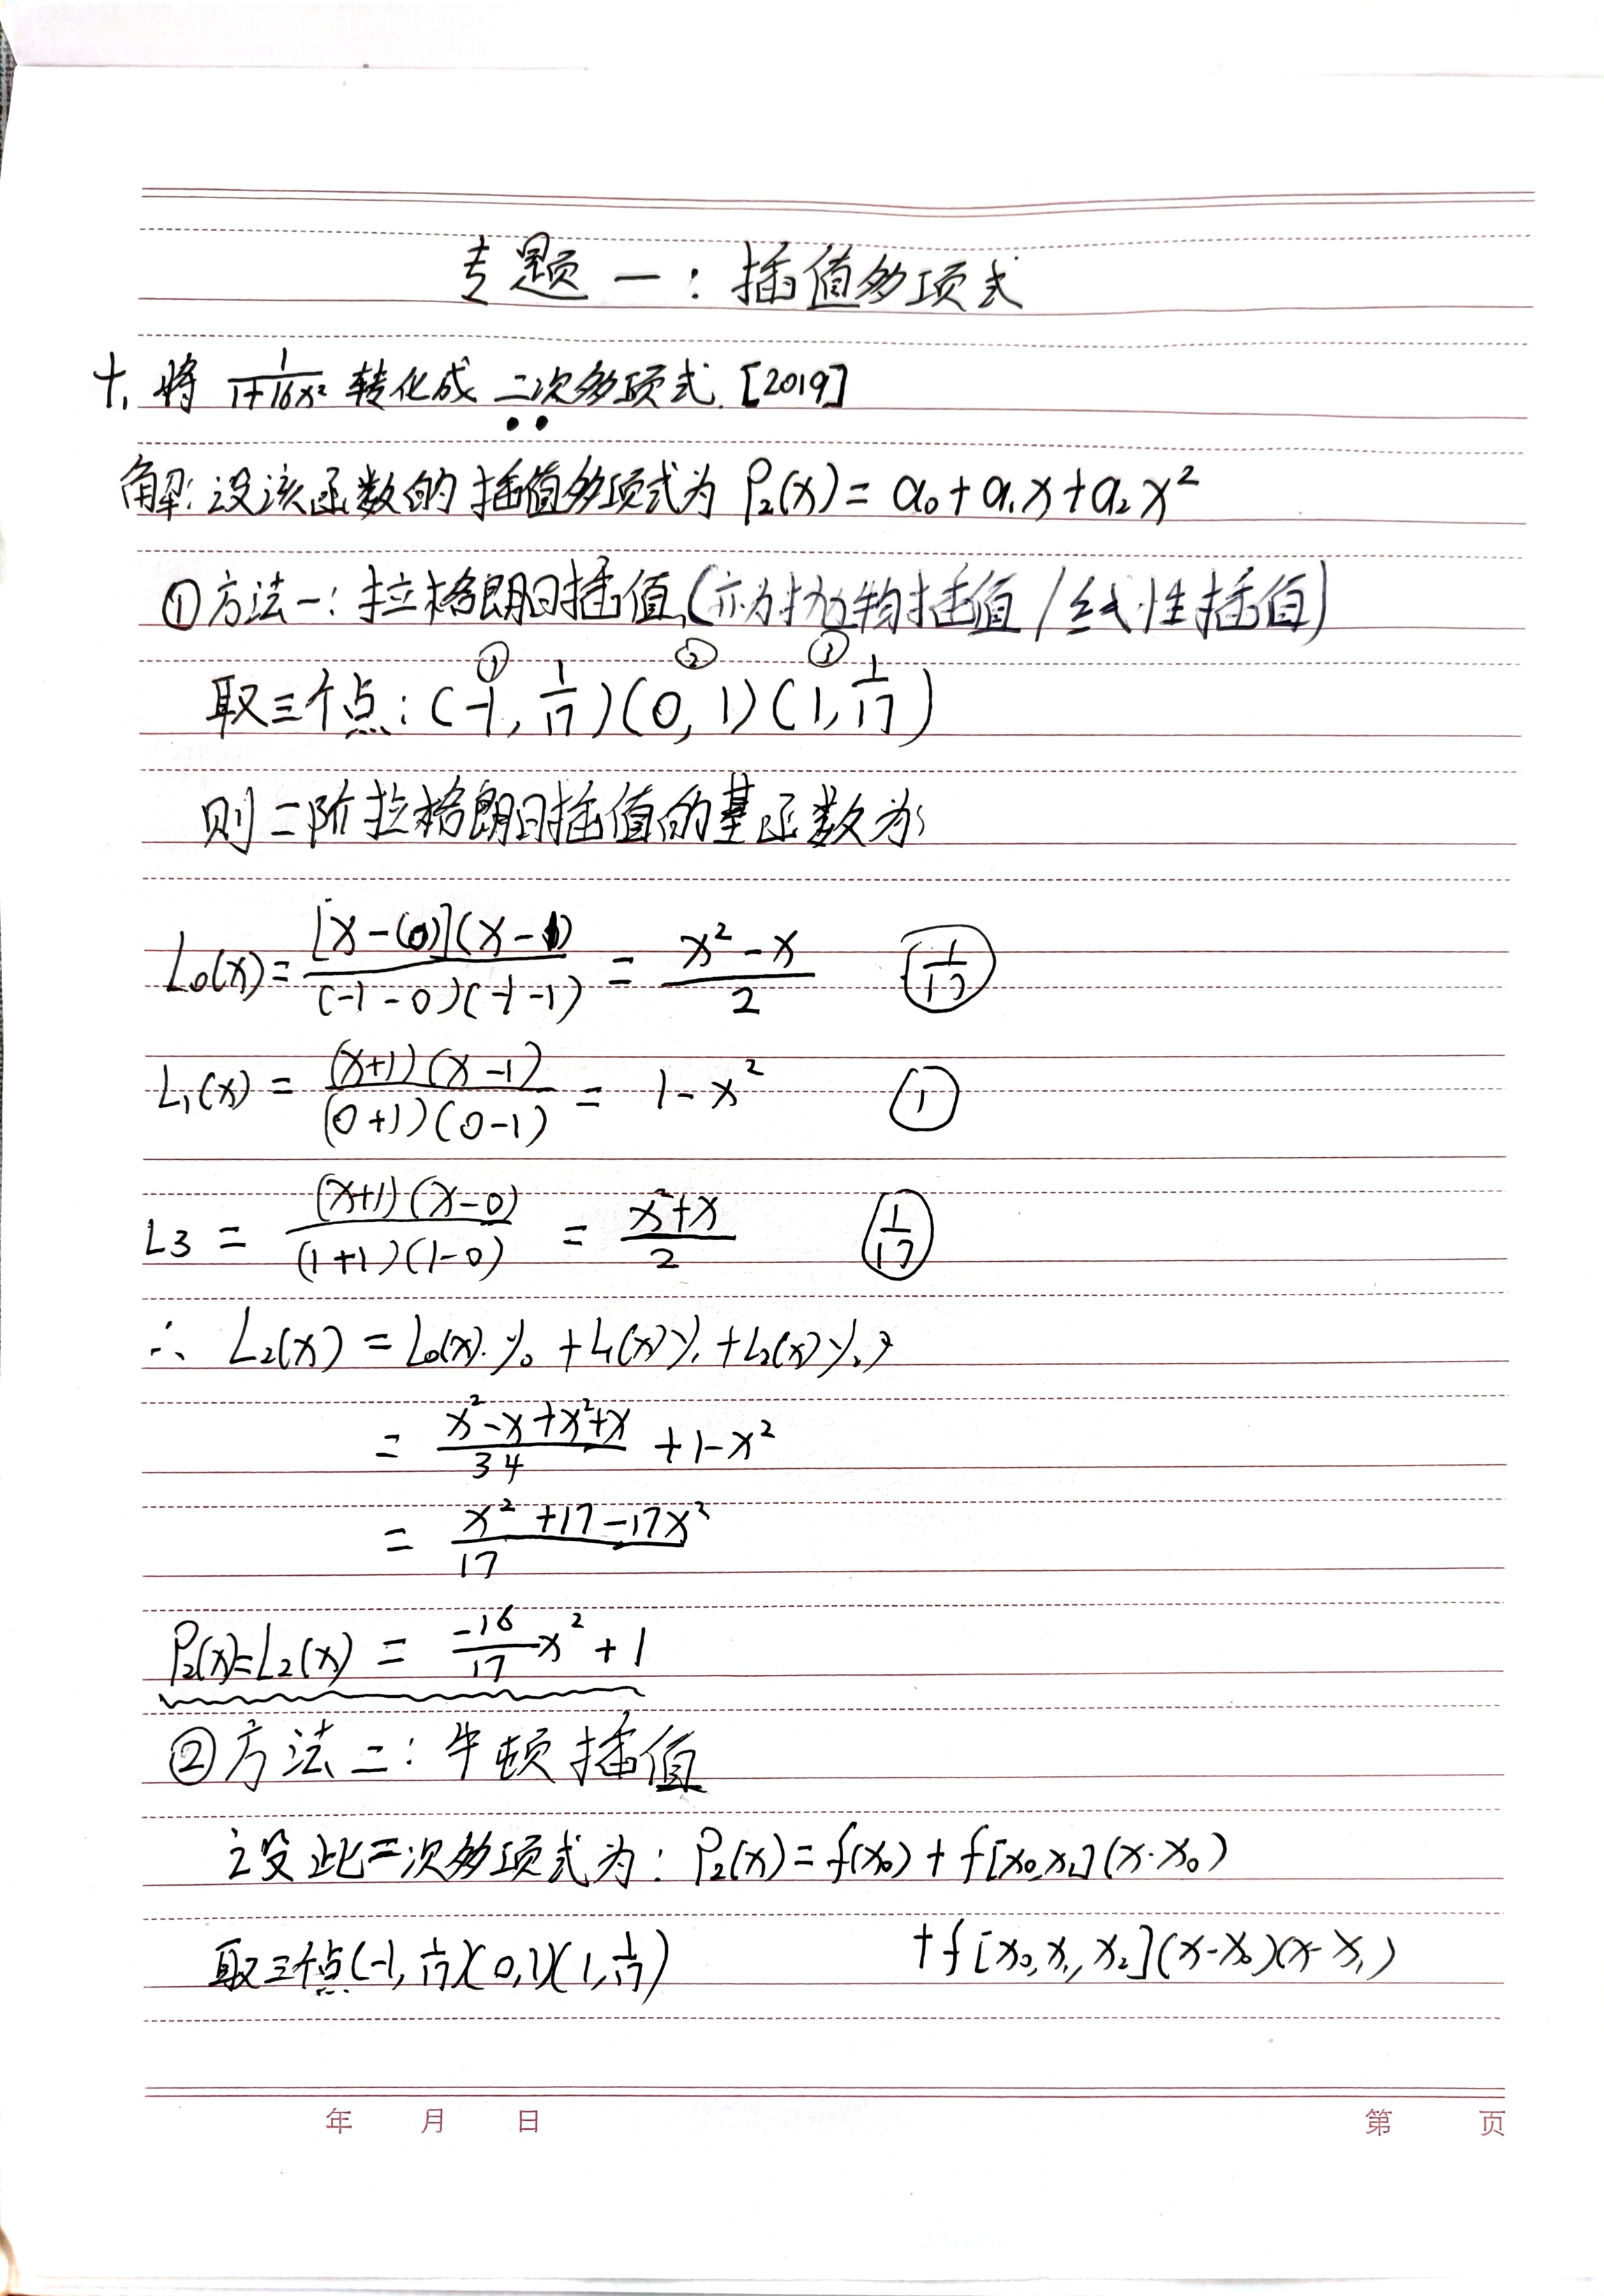 专题一：插值多项式
十、将 1/(1+16x²) 转化成二次多项式. [2019]
解: 设该函数的插值多项式为 P₂(x) = a₀ + a₁x + a₂x²
①方法一: 拉格朗日插值 (亦为抛物插值 / 线性插值)
① ② ③
取三个点: (-1, 1/17) (0, 1) (1, 1/17)
则二阶拉格朗日插值的基函数为:
L₀(x) = [x-(0)](x-1) / (-1-0)(-1-1) = (x²-x)/2 1/17
L₁(x) = (x+1)(x-1) / (0+1)(0-1) = 1-x² 1
L3 = (x+1)(x-0) / (1+1)(1-0) = (x²+x)/2 1/17
∴ L₂(x) = L₀(x)·y₀ + L₁(x)y₁ + L₂(x)y₂
= (x²-x+x²+x)/34 + 1-x²
= (x²+17-17x²)/17
P₂(x)=L₂(x) = -16/17 x² + 1
②方法二: 牛顿插值
设此二次多项式为: P₂(x) = f(x₀) + f[x₀,x₁](x-x₀)
+ f[x₀,x₁,x₂](x-x₀)(x-x₁)
取三个点(-1, 1/17)(0,1)(1, 1/17)
年 月 日 第 页